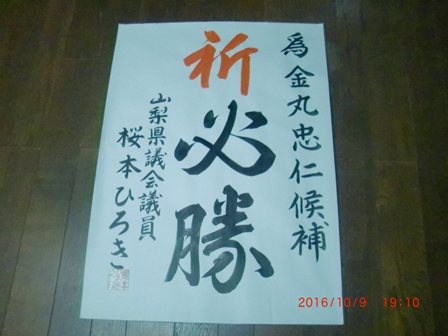 為金丸忠仁候補
祈必勝
山梨県議会議員
桜本ひろき
2016/10/9 19:10